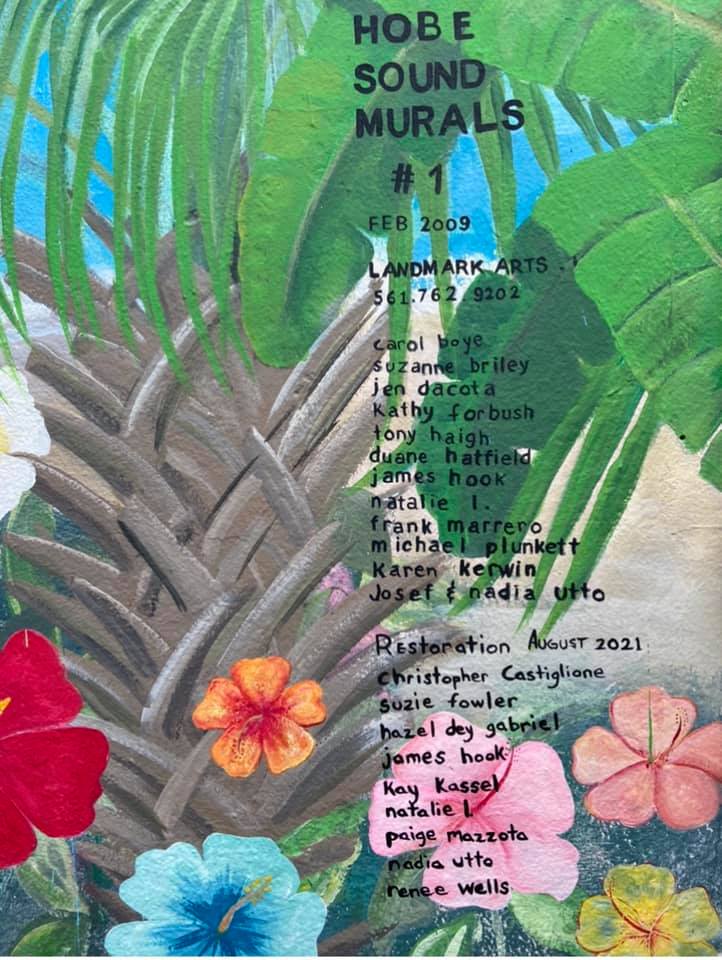 HOBE
SOUND
MURALS
#1
FEB 2009
LANDMARK ARTS
561.762.9202
carol boye
suzanne briley
jen dacota
Kathy forbush
tony haigh
duane hatfield
james hook
natalie l.
frank marrero
michael plunkett
Karen kerwin
Josef & nadia utto
Restoration August 2021
christopher Castiglione
suzie fowler
hazel dey gabriel
james hook
Kay Kassel
natalie l.
paige mazzota
nadia utto
renee wells